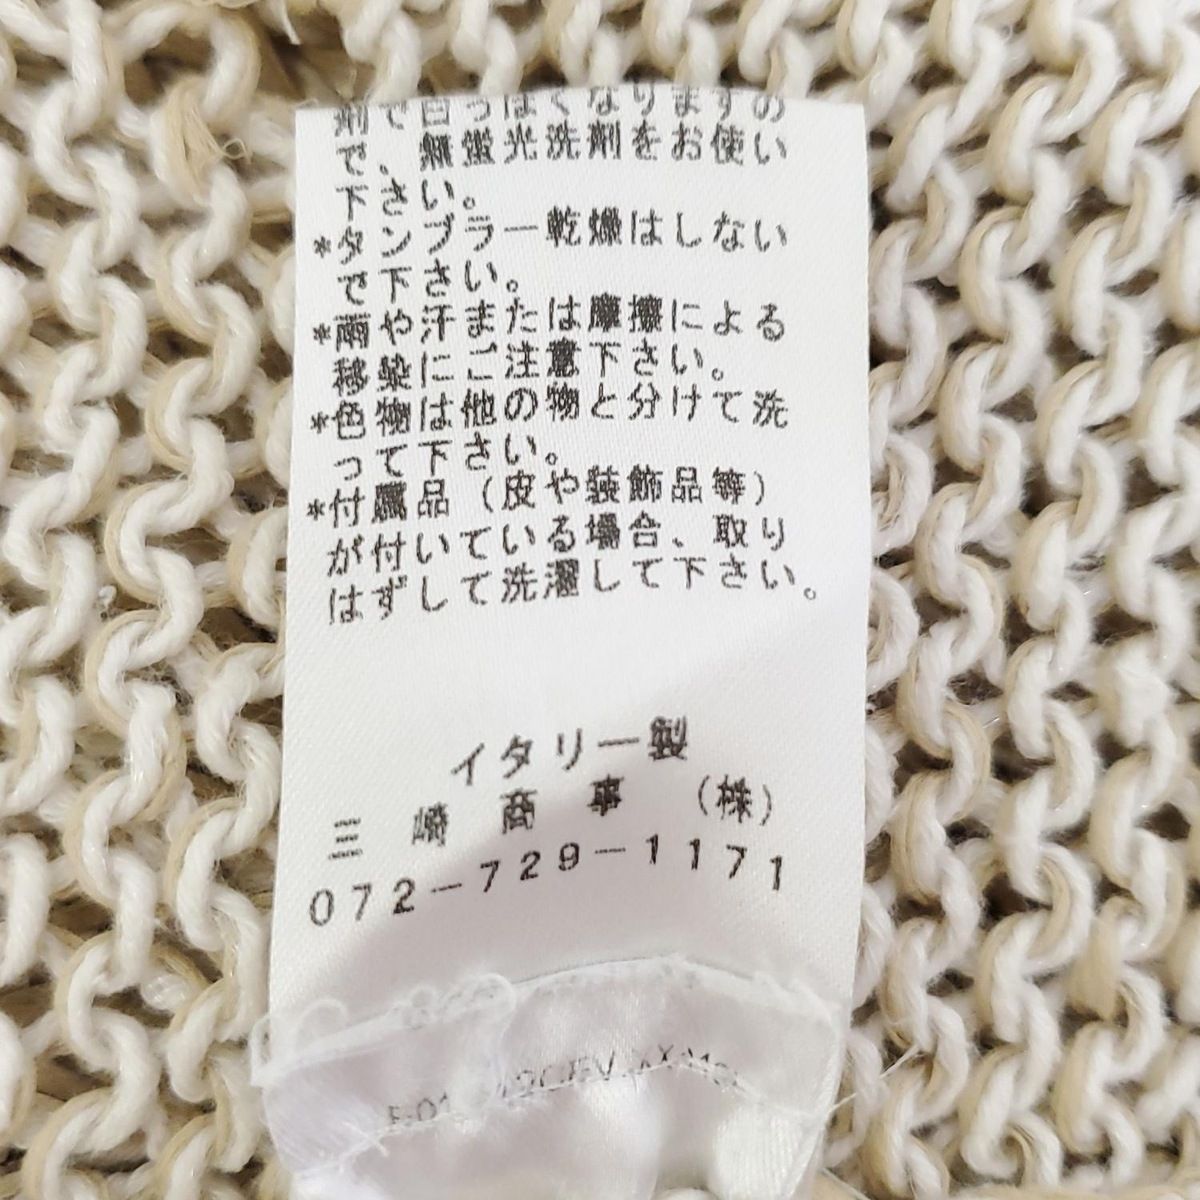 剤で白っぽくなりますの
で、無蛍光洗剤をお使い
下さい。
*タンブラー乾燥はしない
で下さい。
*雨や汗または摩擦による
移染にご注意下さい。
*色物は他の物と分けて洗
って下さい。
*付属品（皮や装飾品等）
が付いている場合、取り
はずして洗濯して下さい。
イタリー製
三崎商事（株）
072-729-1171